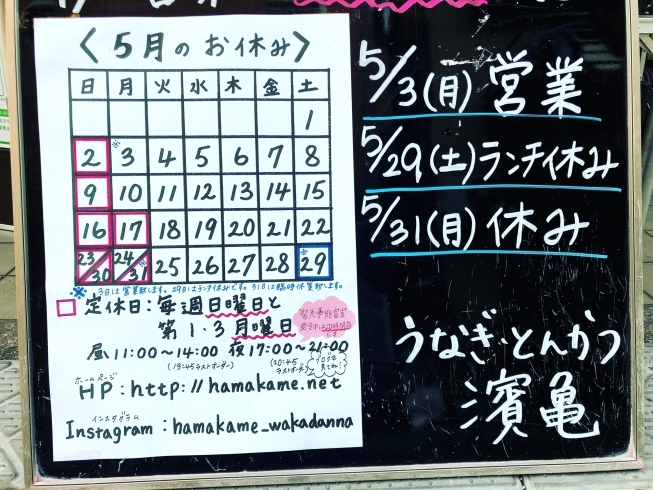 〈5月のお休み〉
日 月 火 水 木 金 土
1
2 ※3 4 5 6 7 8
9 10 11 12 13 14 15
16 17 18 19 20 21 22
23/30 24/31※ 25 26 27 28 ※29
※3日は営業致します。29日はランチ休みです。31日は臨時休業致します。
定休日:毎週日曜日と
第1・3月曜日
昼11:00〜14:00 夜17:00〜21:00
ホームページ
HP:http://hamakame.net
インスタグラム
Instagram:hamakame_wakadanna
5/3(月)営業
5/29(土)ランチ休み
5/31(月)休み
うなぎ・とんかつ
濱亀